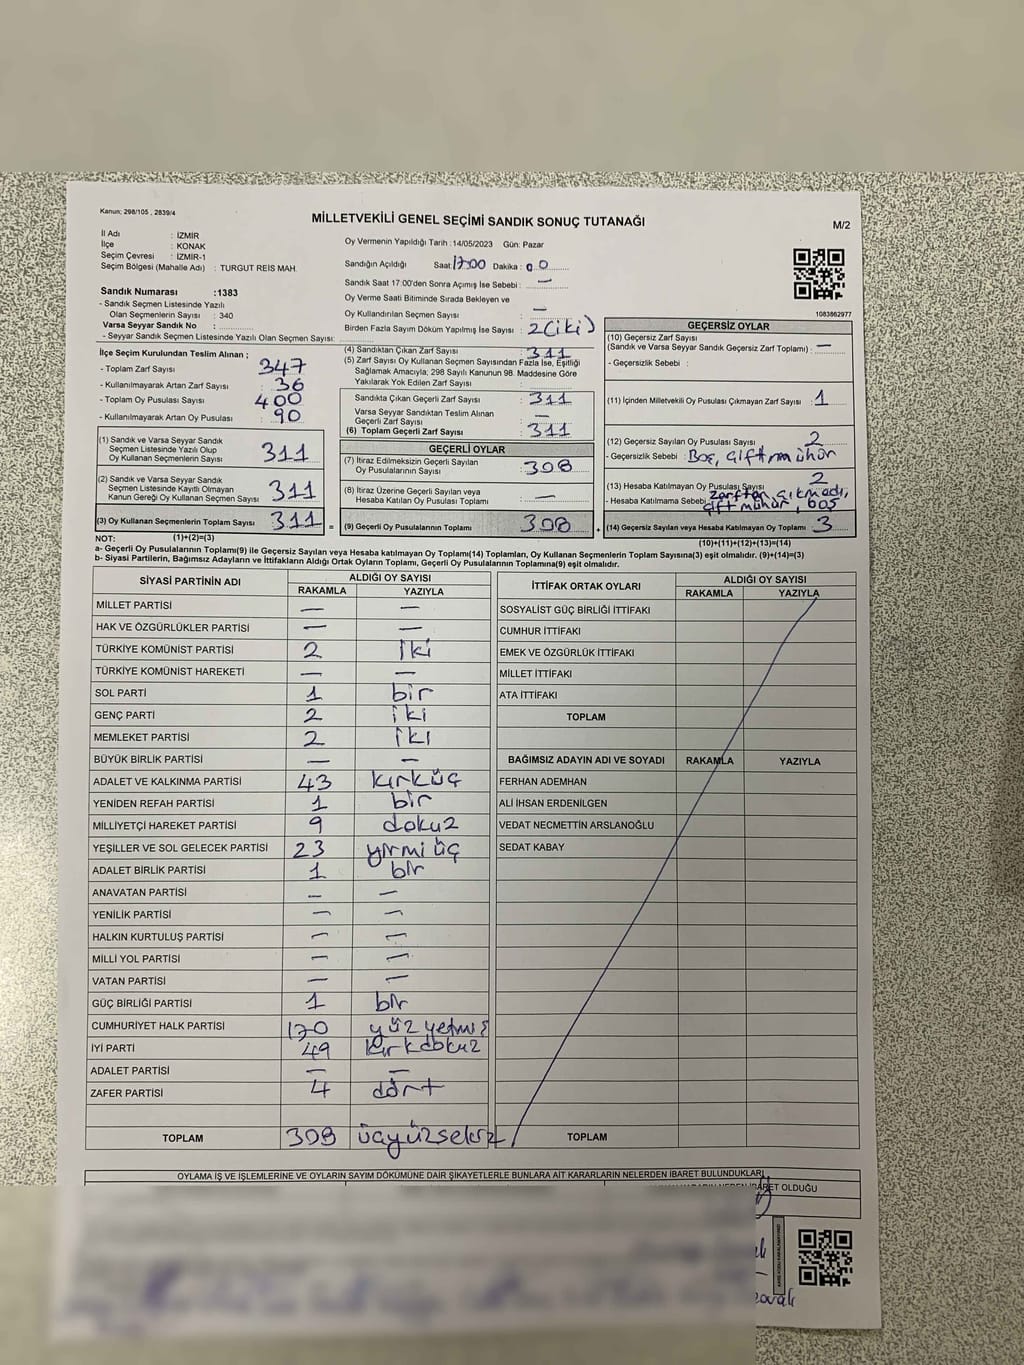 Kanun: 298/105 , 2839/4
MİLLETVEKİLİ GENEL SEÇİMİ SANDIK SONUÇ TUTANAĞI
M/2
İl Adı : İZMİR
İlçe : KONAK
Seçim Çevresi : İZMİR-1
Seçim Bölgesi (Mahalle Adı) : TURGUT REİS MAH.
Sandık Numarası :1383
- Sandık Seçmen Listesinde Yazılı
Olan Seçmenlerin Sayısı : 340
Varsa Seyyar Sandık No :
- Seyyar Sandık Seçmen Listesinde Yazılı Olan Seçmen Sayısı:
Oy Vermenin Yapıldığı Tarih :14/05/2023 Gün: Pazar
Sandığın Açıldığı Saat:17:00 Dakika : 00
Sandık Saat 17:00'den Sonra Açılmış İse Sebebi : —
Oy Verme Saati Bitiminde Sırada Bekleyen ve
Oy Kullandırılan Seçmen Sayısı : —
Birden Fazla Sayım Döküm Yapılmış İse Sayısı : 2(iki)
1083862977
İlçe Seçim Kurulundan Teslim Alınan ;
- Toplam Zarf Sayısı : 347
- Kullanılmayarak Artan Zarf Sayısı : 36
- Toplam Oy Pusulası Sayısı : 400
- Kullanılmayarak Artan Oy Pusulası : 90
(1) Sandık ve Varsa Seyyar Sandık
Seçmen Listesinde Yazılı Olup
Oy Kullanan Seçmenlerin Sayısı 311
(2) Sandık ve Varsa Seyyar Sandık
Seçmen Listesinde Kayıtlı Olmayan
Kanun Gereği Oy Kullanan Seçmen Sayısı 311
(3) Oy Kullanan Seçmenlerin Toplam Sayısı 311 =
(1)+(2)=(3)
(4) Sandıktan Çıkan Zarf Sayısı : 311
(5) Zarf Sayısı Oy Kullanan Seçmen Sayısından Fazla İse, Eşitliği
Sağlamak Amacıyla; 298 Sayılı Kanunun 98. Maddesine Göre
Yakılarak Yok Edilen Zarf Sayısı :
Sandıkta Çıkan Geçerli Zarf Sayısı : 311
Varsa Seyyar Sandıktan Teslim Alınan
Geçerli Zarf Sayısı : —
(6) Toplam Geçerli Zarf Sayısı : 311
GEÇERLİ OYLAR
(7) İtiraz Edilmeksizin Geçerli Sayılan
Oy Pusulalarının Sayısı : 308
(8) İtiraz Üzerine Geçerli Sayılan veya
Hesaba Katılan Oy Pusulası Toplamı : —
(9) Geçerli Oy Pusulalarının Toplamı : 308 +
GEÇERSİZ OYLAR
(10) Geçersiz Zarf Sayısı
(Sandık ve Varsa Seyyar Sandık Geçersiz Zarf Toplamı) : —
- Geçersizlik Sebebi :
(11) İçinden Milletvekili Oy Pusulası Çıkmayan Zarf Sayısı : 1
(12) Geçersiz Sayılan Oy Pusulası Sayısı : 2
- Geçersizlik Sebebi : Boş, çift mühür
(13) Hesaba Katılmayan Oy Pusulası Sayısı : 2
- Hesaba Katılmama Sebebi : zarftan çıkmadı,
çift mühür, boş
(14) Geçersiz Sayılan veya Hesaba Katılmayan Oy Toplamı : 3
(10)+(11)+(12)+(13)=(14)
NOT:
a- Geçerli Oy Pusulalarının Toplamı(9) ile Geçersiz Sayılan veya Hesaba katılmayan Oy Toplamı(14) Toplamları, Oy Kullanan Seçmenlerin Toplam Sayısına(3) eşit olmalıdır. (9)+(14)=(3)
b- Siyasi Partilerin, Bağımsız Adayların ve İttifakların Aldığı Ortak Oyların Toplamı, Geçerli Oy Pusulalarının Toplamına(9) eşit olmalıdır.
SİYASİ PARTİNİN ADI ALDIĞI OY SAYISI
RAKAMLA YAZIYLA
MİLLET PARTİSİ — —
HAK VE ÖZGÜRLÜKLER PARTİSİ — —
TÜRKİYE KOMÜNİST PARTİSİ 2 iki
TÜRKİYE KOMÜNİST HAREKETİ — —
SOL PARTİ 1 bir
GENÇ PARTİ 2 iki
MEMLEKET PARTİSİ 2 iki
BÜYÜK BİRLİK PARTİSİ — —
ADALET VE KALKINMA PARTİSİ 43 kırküç
YENİDEN REFAH PARTİSİ 1 bir
MİLLİYETÇİ HAREKET PARTİSİ 9 dokuz
YEŞİLLER VE SOL GELECEK PARTİSİ 23 yirmiüç
ADALET BİRLİK PARTİSİ 1 bir
ANAVATAN PARTİSİ — —
YENİLİK PARTİSİ — —
HALKIN KURTULUŞ PARTİSİ — —
MİLLİ YOL PARTİSİ — —
VATAN PARTİSİ — —
GÜÇ BİRLİĞİ PARTİSİ 1 bir
CUMHURİYET HALK PARTİSİ 170 yüz yetmiş
İYİ PARTİ 49 kırkdokuz
ADALET PARTİSİ — —
ZAFER PARTİSİ 4 dört
TOPLAM 308 üçyüzsekiz
İTTİFAK ORTAK OYLARI ALDIĞI OY SAYISI
RAKAMLA YAZIYLA
SOSYALİST GÜÇ BİRLİĞİ İTTİFAKI
CUMHUR İTTİFAKI
EMEK VE ÖZGÜRLÜK İTTİFAKI
MİLLET İTTİFAKI
ATA İTTİFAKI
TOPLAM
BAĞIMSIZ ADAYIN ADI VE SOYADI RAKAMLA YAZIYLA
FERHAN ADEMHAN
ALİ İHSAN ERDENİLGEN
VEDAT NECMETTİN ARSLANOĞLU
SEDAT KABAY
TOPLAM
OYLAMA İŞ VE İŞLEMLERİNE VE OYLARIN SAYIM DÖKÜMÜNE DAİR ŞİKAYETLERLE BUNLARA AİT KARARLARIN NELERDEN İBARET BULUNDUKLARI
OLDUĞU